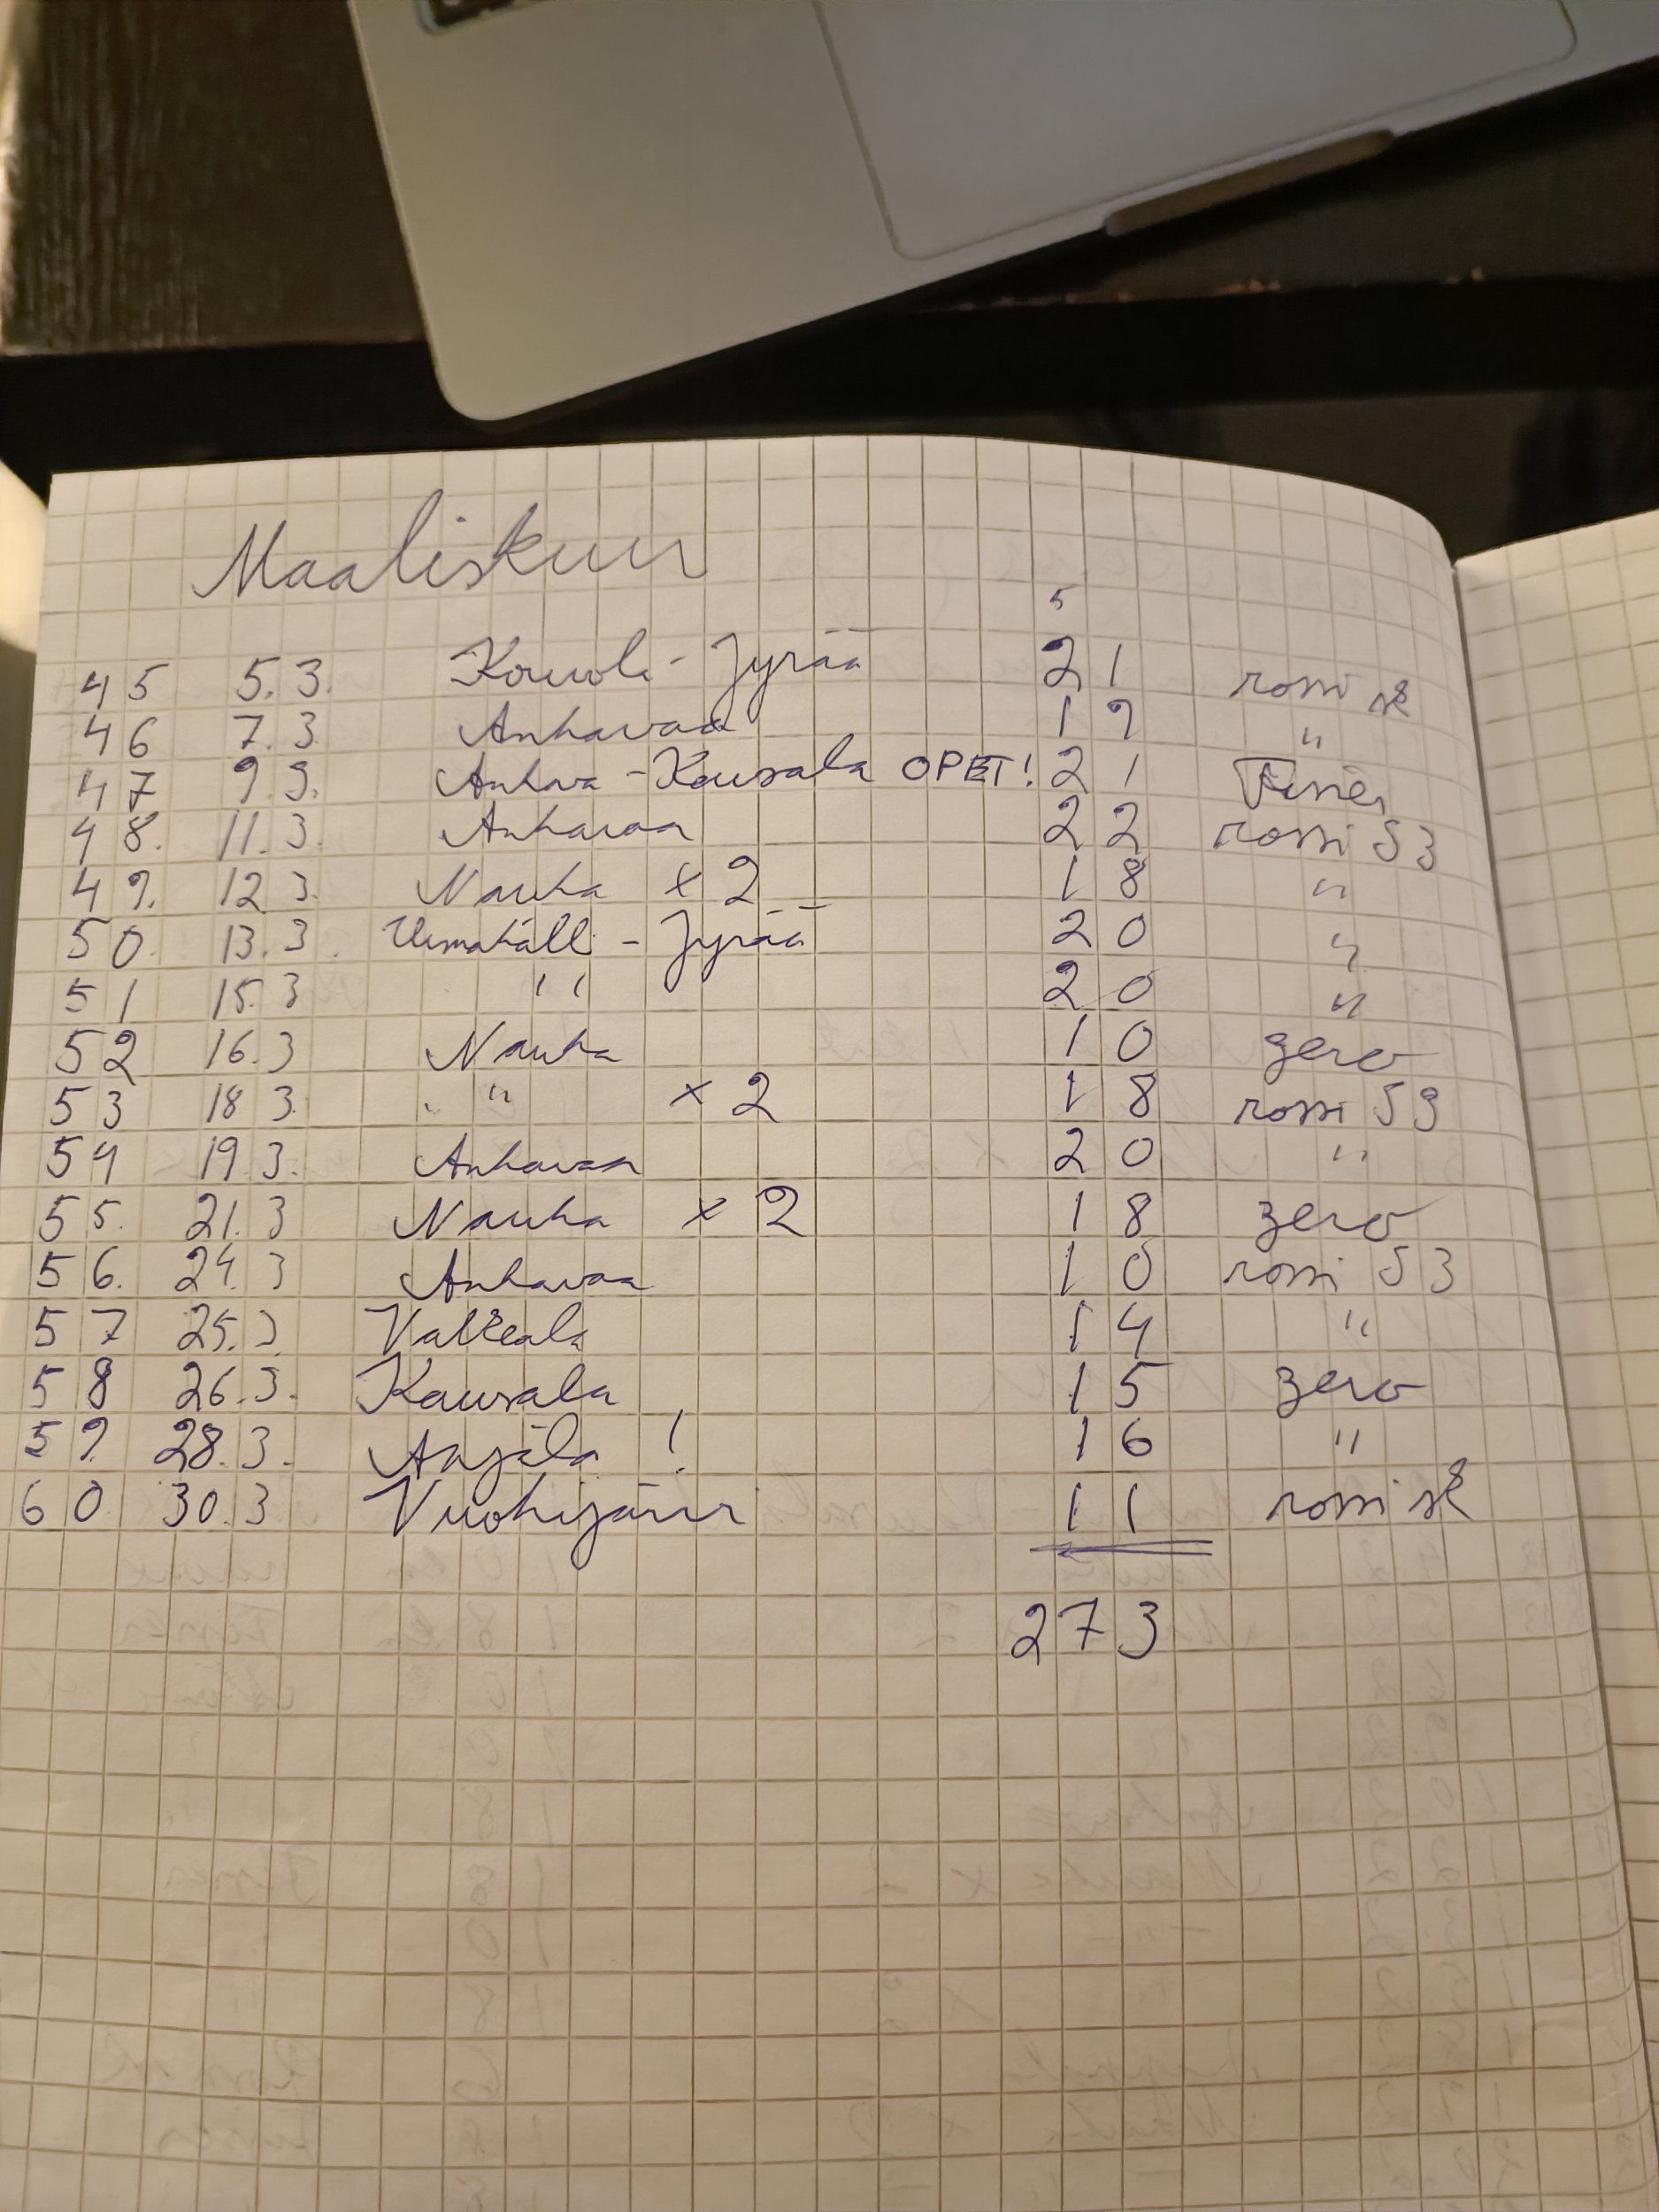 Maaliskuu
5
45 5.3. Kouvola - Jyrää 21 rossi sk
46 7.3. Anhavaa 19 "
47 9.3. Anhava - Kausala OPET! 21 Fisher
48. 11.3. Anhavaa 22 rossi S3
49. 12 3. Nauha x 2 18 "
50. 13.3. Uimahall - Jyrää 20 "
51 15.3 " 20 "
52 16.3 Nauha 10 zero
53 18 3. " x 2 18 rossi S3
54 19 3. Anhavaa 20 "
55. 21.3 Nauha x 2 18 zero
56. 24.3 Anhavaa 10 rossi S3
57 25.3. Valkeala 14 "
58 26.3. Kausala 15 zero
59. 28.3. Anjala ! 16 "
60 30.3 Vuohijärvi 11 rossi sk
273